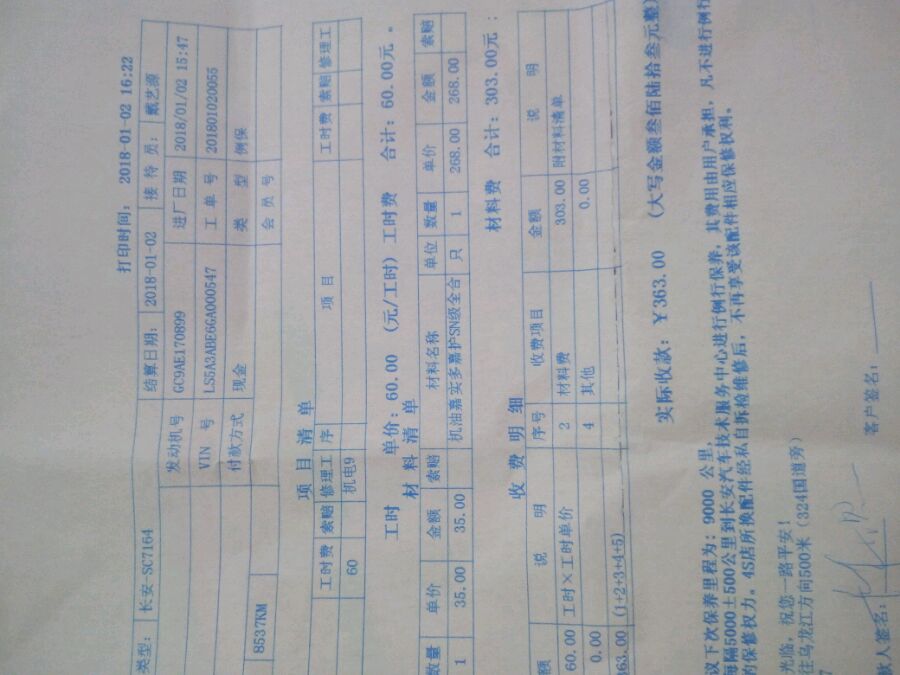 打印时间: 2018-01-02 16:22
类型: 长安-SC7164 结算日期: 2018-01-02 接待员: 戴艺源
发动机号 GC9AE170899 进厂日期 2018/01/02 15:47
VIN 号 LS5A3ABE6GA000547 工单号 201801020055
8537KM 付款方式 现金 类型 例保
会员号
项目清单
工时费 索赔 修理工 序 项目 工时费 索赔 修理工
60 机电9
工时 单价: 60.00 (元/工时) 工时费 合计: 60.00元。
材料清单
数量 单价 金额 索赔 材料名称 单位 数量 单价 金额 索赔
1 35.00 35.00 机油嘉实多嘉护SN级全合 只 1 268.00 268.00
材料费 合计: 303.00元
收费明细
额 说明 序号 收费项目 金额 说明
60.00 工时×工时单价 2 材料费 303.00 附材料清单
0.00 4 其他 0.00
363.00 (1+2+3+4+5)
实际收款: ¥363.00 (大写金额叁佰陆拾叁元整)
议下次保养里程为: 9000 公里,
每隔5000±500公里到长安汽车技术服务中心进行例行保养, 其费用由用户承担, 凡不进行例行
的保修权力。4S店所换配件经私自拆检维修后, 不再享受该配件相应保修权利。
光临, 祝您一路平安!
往乌龙江方向500米 (324国道旁)
7
款人签名: 客户签名: